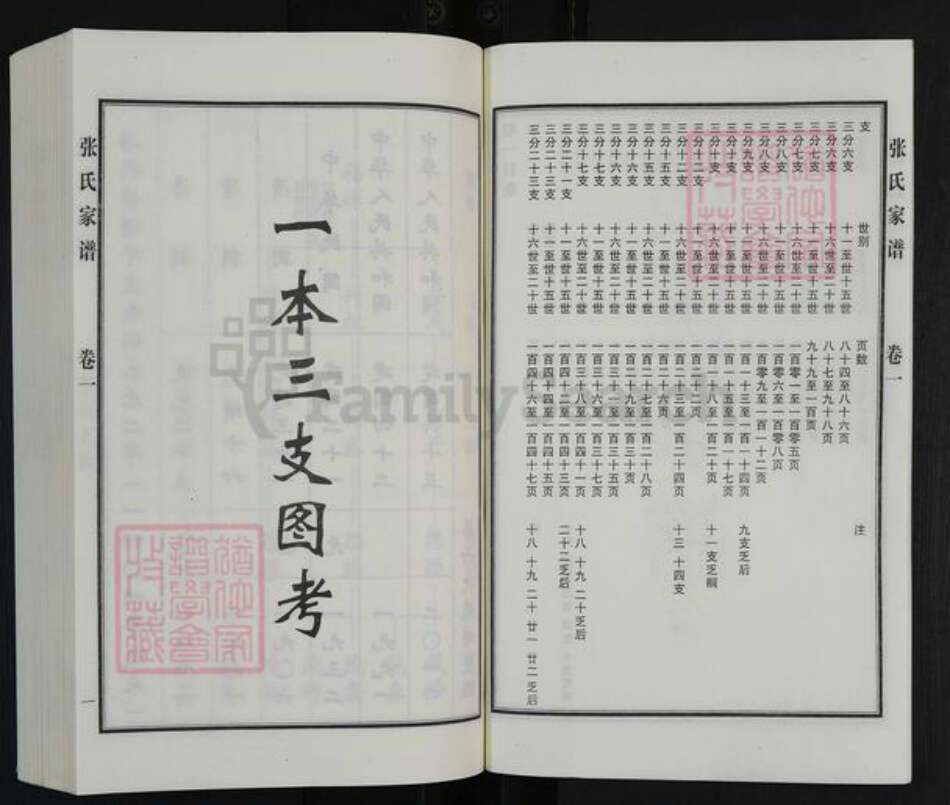 张氏家谱 卷一
支 世别 页数 注
三分六支 十一至世十五世 八十四至八十六页
三分六支 十六世至二十世 八十七至九十八页
三分七支 十一至世十五世 九十九至一百页
三分七支 十六世至二十世 一百零一至一百零五页
三分八支 十一至世十五世 一百零六至一百零八页
三分八支 十六世至二十世 一百零九至一百一十二页
三分九支 十一至世十五世 一百一十三至一百一十四页 九支乏后
三分十支 十一至世十五世 一百一十五至一百一十七页
三分十支 十六世至二十世 一百一十八至一百二十页 十一支乏嗣
三分十二支 十一至世十五世 一百二十二页
三分十二支 十六世至二十世 一百二十三至一百二十四页 十三 十四支
三分十五支 十一至世十五世 一百二十六页
三分十五支 十六世至二十世 一百二十七至一百二十八页
三分十六支 十一至世十五世 一百二十九至一百三十页
三分十六支 十六世至二十世 一百三十一至一百三十五页
三分十七支 十一至世十五世 一百三十六至一百三十七页
三分十七支 十六世至二十世 一百三十八至一百四十一页 十八 十九 二十乏后
三分二十一支 十一至世十五世 一百四十二至一百四十三页 二十二乏后
三分二十三支 十一至世十五世 一百四十四至一百四十五页
三分二十三支 十六世至二十世 一百四十六至一百四十七页 十八 十九 二十 廿一 廿二乏后
一本三支图考
张氏家谱 卷一 一
Family